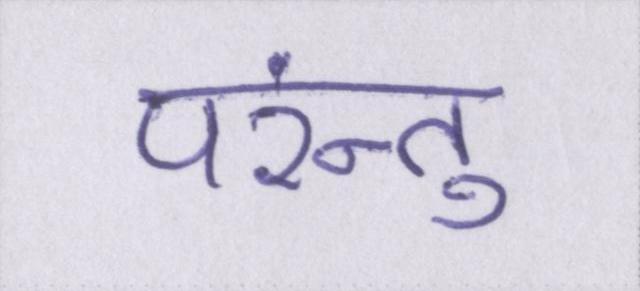 परंन्तु